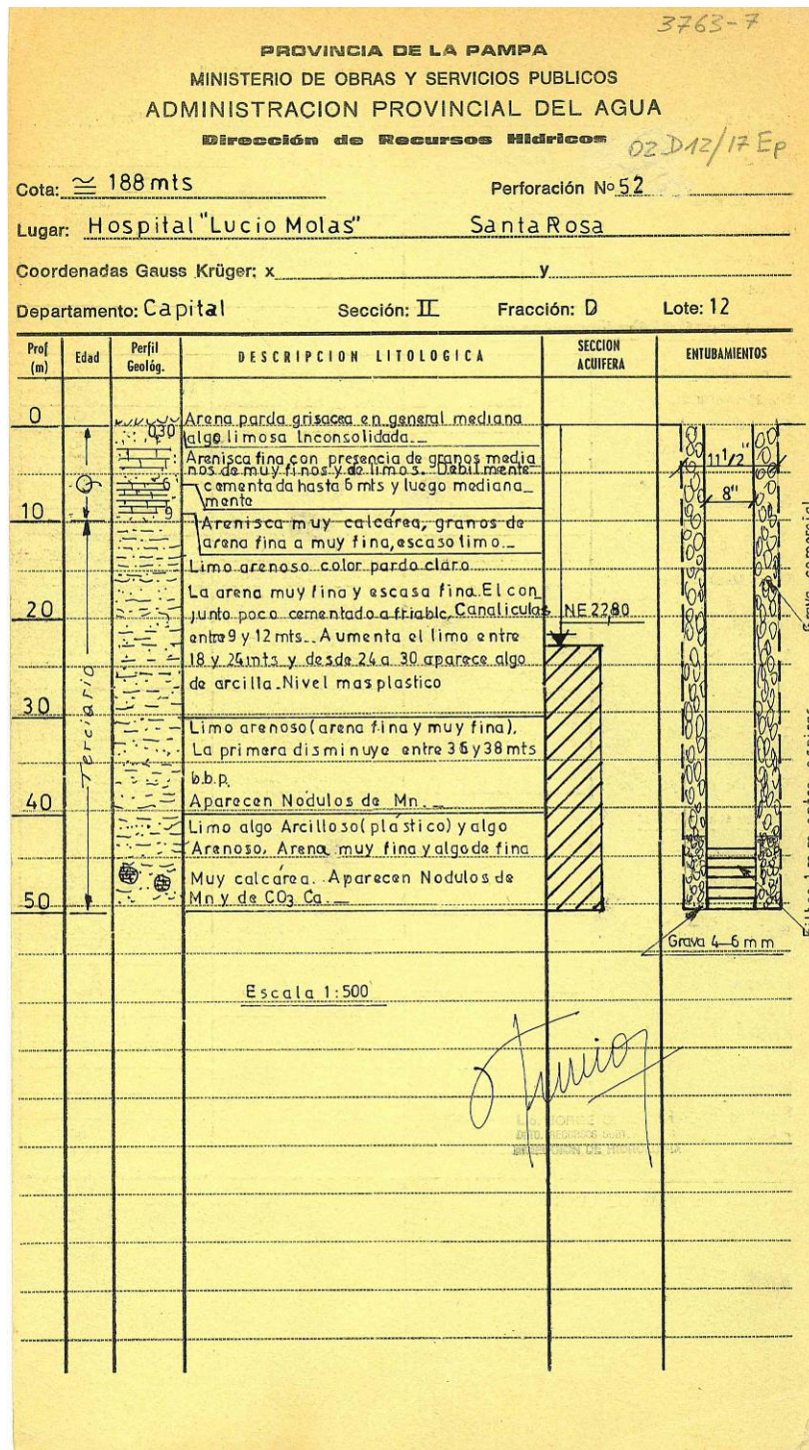 3763-7
PROVINCIA DE LA PAMPA
MINISTERIO DE OBRAS Y SERVICIOS PUBLICOS
ADMINISTRACION PROVINCIAL DEL AGUA
Dirección de Recursos Hídricos
02 D12/17 Ep
Cota: ≅ 188 mts Perforación Nº 52
Lugar: Hospital "Lucio Molas" Santa Rosa
Coordenadas Gauss Krüger: x y
Departamento: Capital Sección: II Fracción: D Lote: 12
Prof (m) Edad Perfil Geológ. DESCRIPCION LITOLOGICA SECCION ACUIFERA ENTUBAMIENTOS
0
10
20
30
40
50
Q
Terciario
0,30
6
9
Arena parda grisacea en general mediana
algo limosa Inconsolidada._
Arenisca fina con presencia de granos media
nos de muy finos y de limos. Débilmente
cementada hasta 6 mts y luego mediana_
mente
Arenisca muy calcárea, granos de
arena fina a muy fina, escaso limo._
Limo arenoso color pardo claro
La arena muy fina y escasa fina. El con_
junto poco cementado a friable. Canaliculas
entre 9 y 12 mts._ Aumenta el limo entre
18 y 24 mts y desde 24 a 30 aparece algo
de arcilla. Nivel mas plastico
Limo arenoso (arena fina y muy fina).
La primera disminuye entre 36 y 38 mts
b.b.p.
Aparecen Nódulos de Mn._
Limo algo Arcilloso (plástico) y algo
Arenoso. Arena muy fina y algo de fina
Muy calcárea. Aparecen Nodulos de
Mn y de CO3 Ca._
NE 22,80
11 1/2"
8"
Grava comercial
Grava 4-6 mm
Escala 1:500